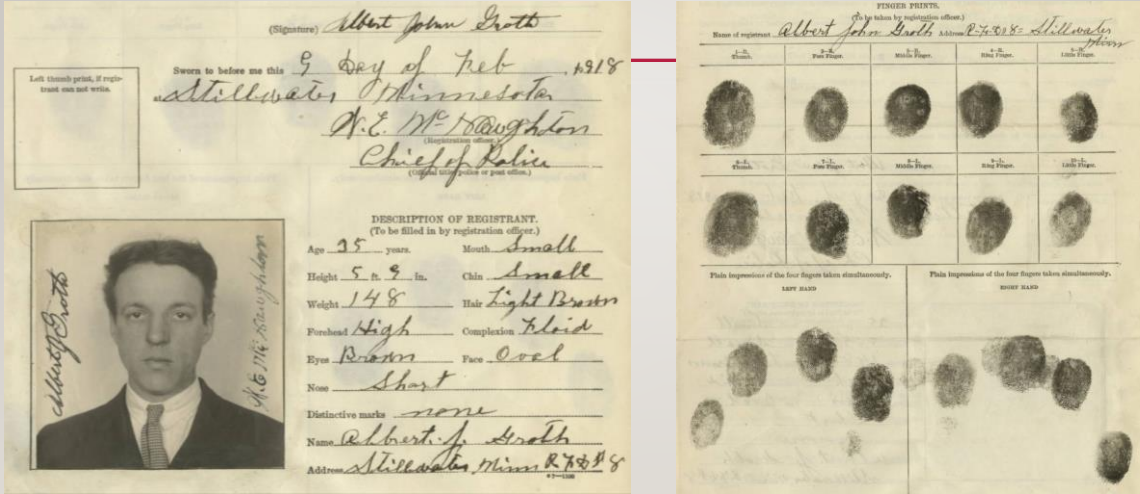 (Signature) Albert John Groth
Left thumb print, if regis-
trant can not write.
Sworn to before me this 9 Day of Feb, 1918
at Stillwater Minnesota
N.E. McNaughton
(Registration officer.)
Chief of Police
(Official title, police or post office.)
DESCRIPTION OF REGISTRANT.
(To be filled in by registration officer.)
Age 35 years. Mouth Small
Height 5 ft. 9 in. Chin Small
Weight 148 Hair Light Brown
Forehead High Complexion Floid
Eyes Brown Face Oval
Nose Short
Distinctive marks none
Name Albert. J. Groth
Address Stillwater, Minn R.F.D # 8
Albert J Groth
N.E McNaughton
FINGER PRINTS.
(To be taken by registration officer.)
Name of registrant Albert John Groth Address R-F-D 8- Stillwater
Minn
1-R. Thumb. 2-R. Fore Finger. 3-R. Middle Finger. 4-R. Ring Finger. 5-R. Little Finger.
6-L. Thumb. 7-L. Fore Finger. 8-L. Middle Finger. 9-L. Ring Finger. 10-L. Little Finger.
Plain impressions of the four fingers taken simultaneously.
LEFT HAND
Plain impressions of the four fingers taken simultaneously.
RIGHT HAND